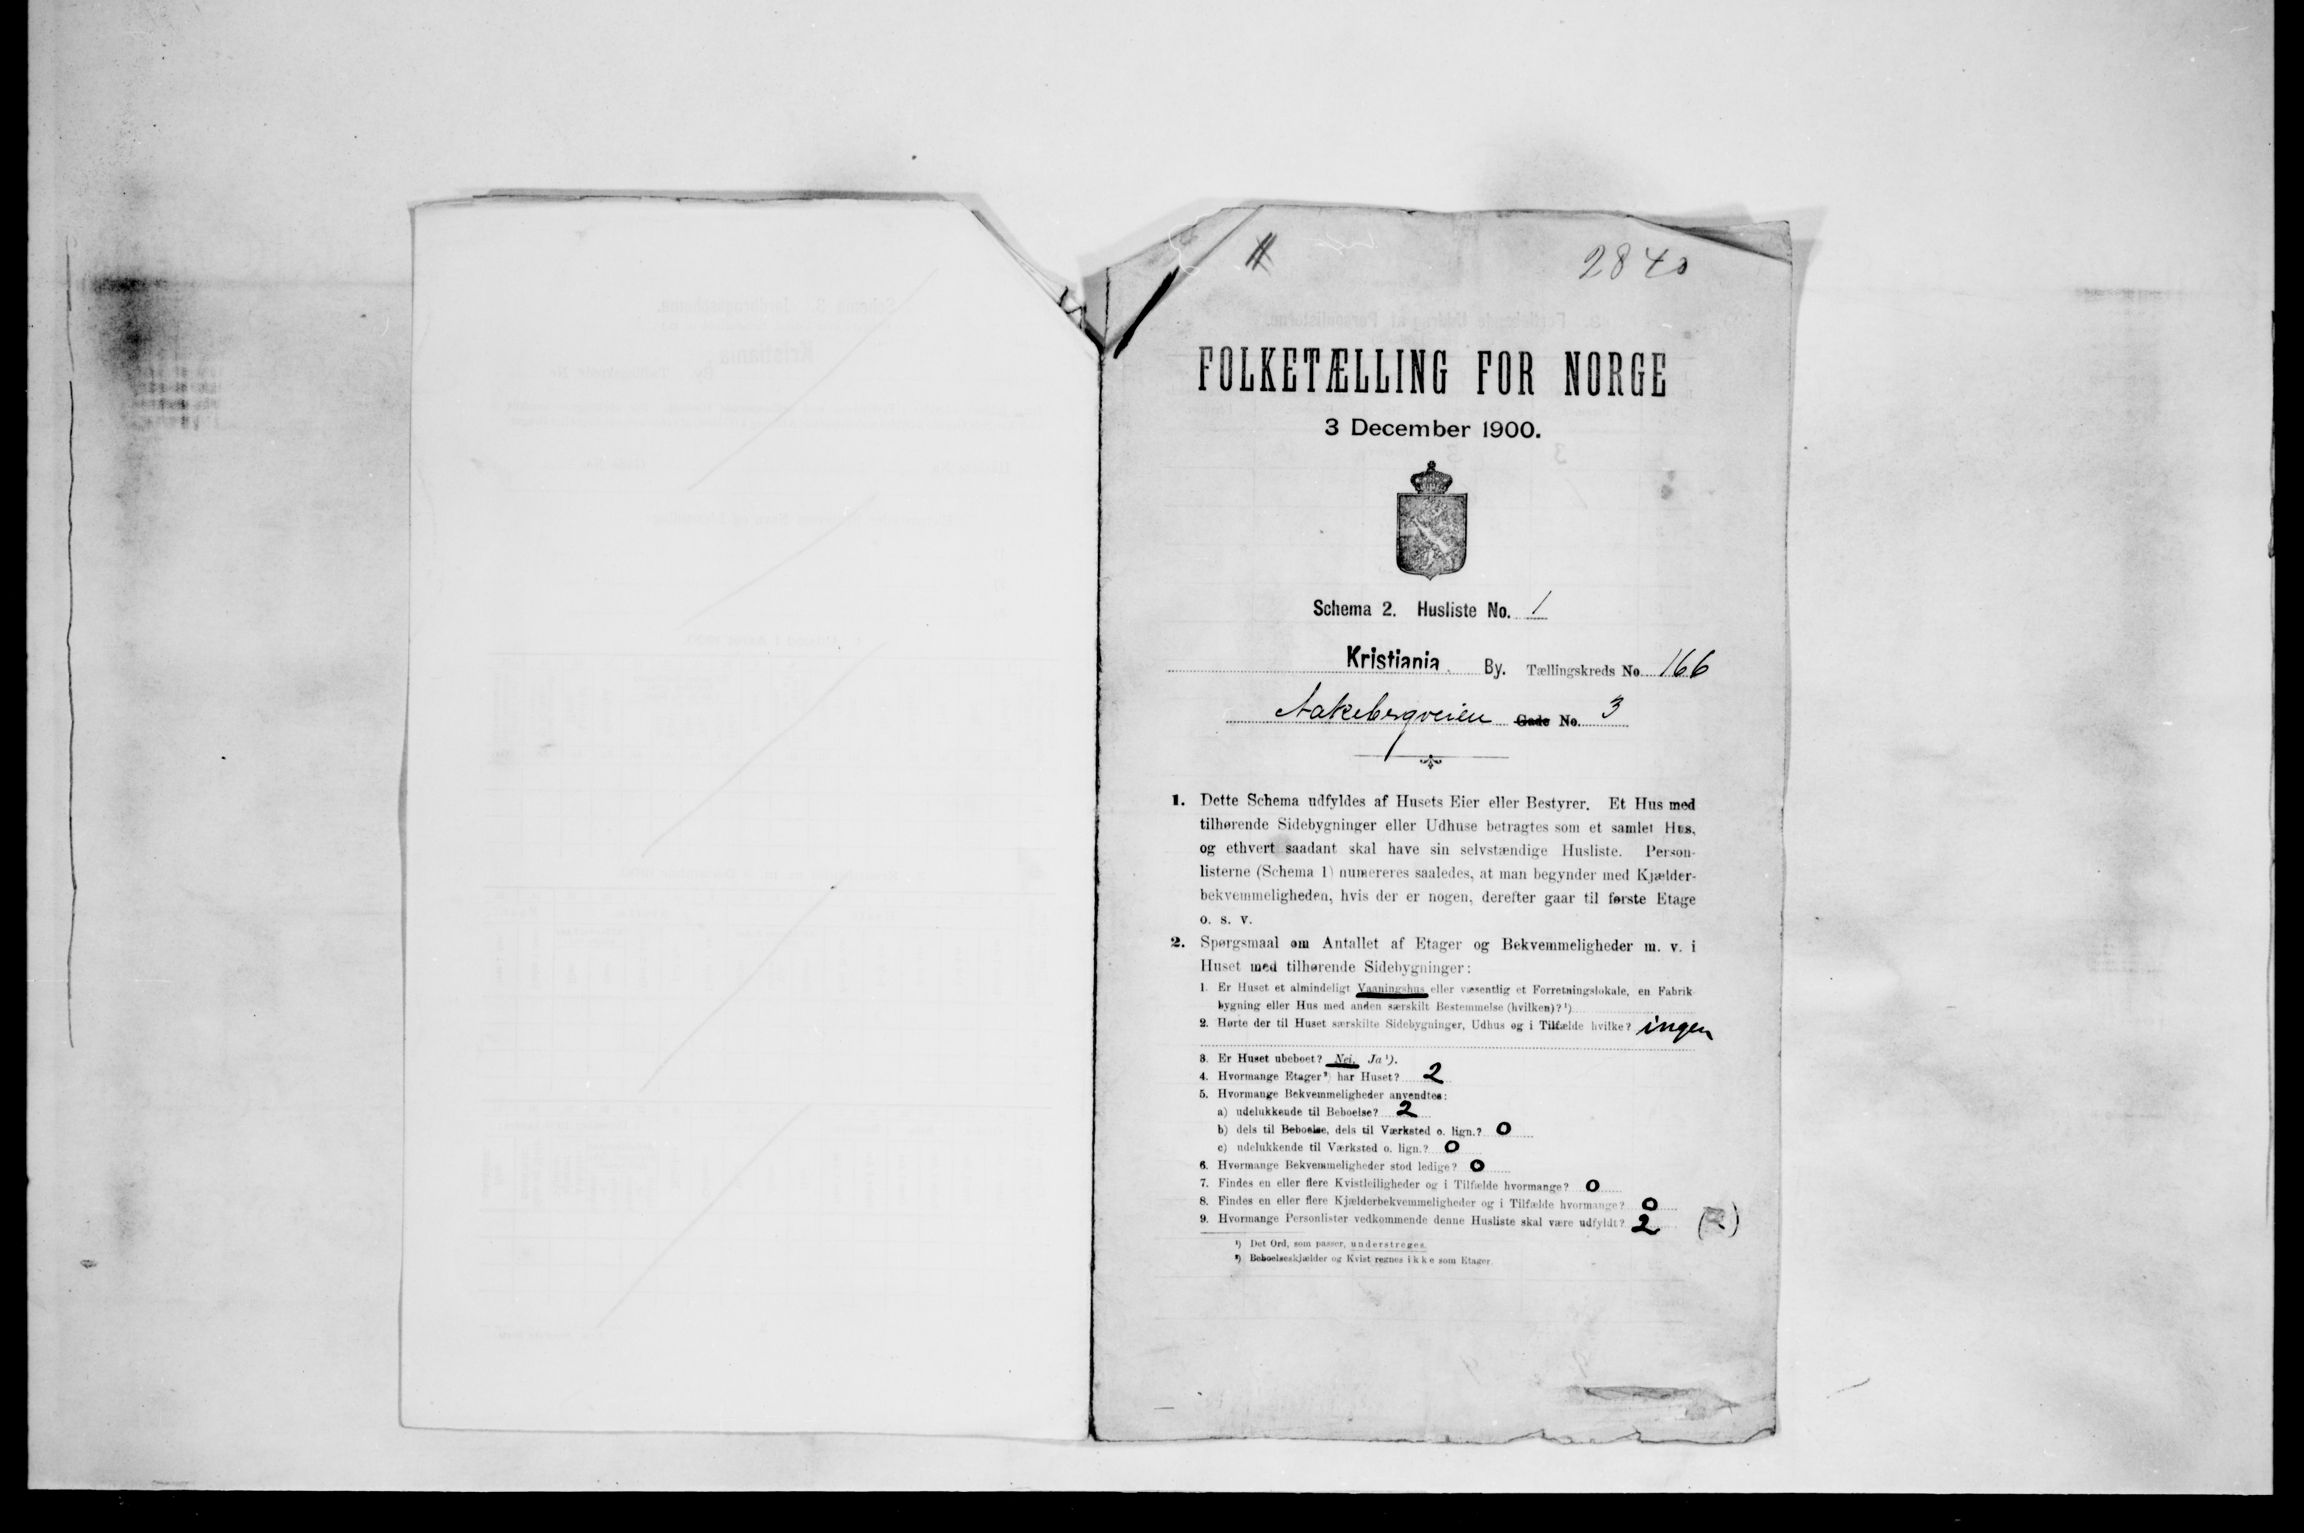 2840
FOLKETÆLLING FOR NORGE
3 December 1900.
Schema 2. Husliste No. 1
Kristiania By. Tællingskreds No. 166
Aakebergveien Gade No. 3
1. Dette Schema udfyldes af Husets Eier eller Bestyrer. Et Hus med
tilhørende Sidebygninger eller Udhuse betragtes som et samlet Hus,
og ethvert saadant skal have sin selvstændige Husliste. Person-
listerne (Schema 1) numereres saaledes, at man begynder med Kjælder-
bekvemmeligheden, hvis der er nogen, derefter gaar til første Etage
o. s. v.
2. Spørgsmaal om Antallet af Etager og Bekvemmeligheder m. v. i
Huset med tilhørende Sidebygninger:
1. Er Huset et almindeligt Vaaningshus eller væsentlig et Forretningslokale, en Fabrik
bygning eller Hus med anden særskilt Bestemmelse (hvilken)? ¹)
2. Hørte der til Huset særskilte Sidebygninger, Udhus og i Tilfælde hvilke? ingen
3. Er Huset ubeboet? Nei. Ja ¹).
4. Hvormange Etager ²) har Huset? 2
5. Hvormange Bekvemmeligheder anvendtes:
a) udelukkende til Beboelse? 2
b) dels til Beboelse, dels til Værksted o. lign.? 0
c) udelukkende til Værksted o. lign.? 0
6. Hvormange Bekvemmeligheder stod ledige? 0
7. Findes en eller flere Kvistleiligheder og i Tilfælde hvormange? 0
8. Findes en eller flere Kjælderbekvemmeligheder og i Tilfælde hvormange? 0
9. Hvormange Personlister vedkommende denne Husliste skal være udfyldt? 2 (2)
¹) Det Ord, som passer, understreges.
²) Beboelseskjælder og Kvist regnes ikke som Etager.